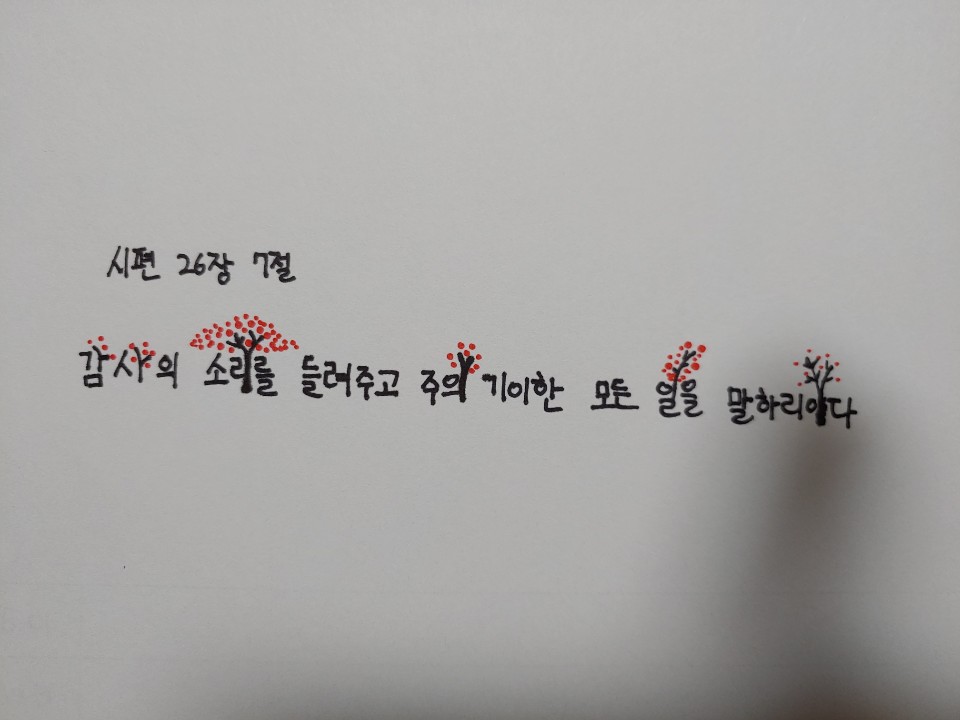 시편 26장 7절
감사의 소리를 들려주고 주의 기이한 모든 일을 말하리이다